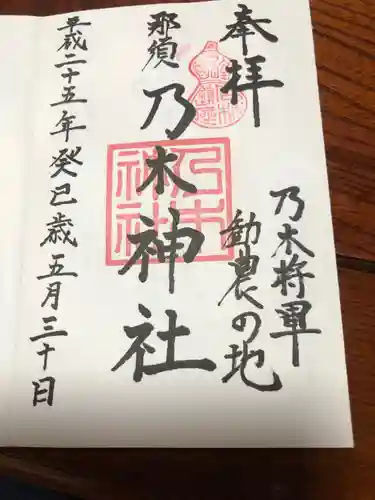 奉拝
乃木将軍
勧農の地
那須
乃木神社
乃木
神社
平成二十五年癸巳歳五月三十日